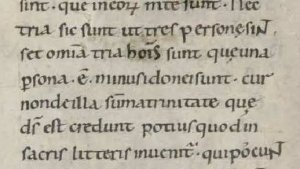 sint · que incorꝑ mite sunt · Nec
tria sic sunt ut tres personę sin̄
set om̄ia tria hoīs sunt quę una
ꝑsona · ē · minus idonei sunt · cur
non de illa sūma trinitate quę
ds̄ est credunt potius quod in
sacris litteris inuenit᷑ · qui